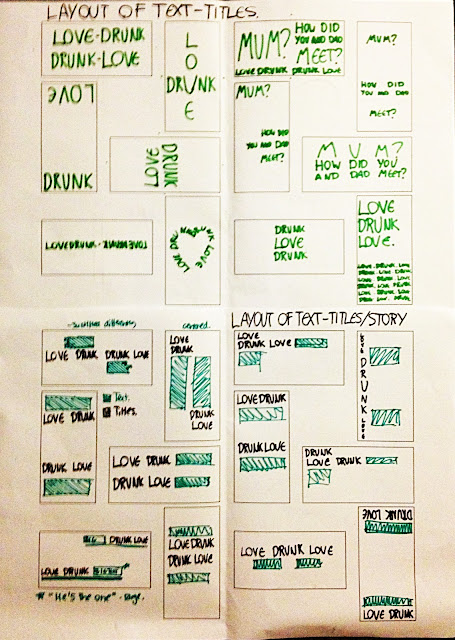 LAYOUT OF TEXT-TITLES.
LOVE-DRUNK
DRUNK-LOVE
L
O
DRUNK
V
E
MUM?
HOW DID
YOU AND DAD
MEET?
LOVE DRUNK DRUNK LOVE
MUM?
HOW DID
YOU AND DAD
MEET?
LOVE
DRUNK
DRUNK
LOVE
MUM?
HOW DID
YOU AND DAD
MEET?
MUM?
HOW DID YOU
AND DAD MEET?
LOVEDRUNK
LOVE DRUNK LOVE
DRUNK
LOVE
DRUNK
LOVE
DRUNK
LOVE.
LAYOUT OF TEXT-TITLES/STORY
LOVE DRUNK DRUNK LOVE
centered.
LOVE
DRUNK
DRUNK
LOVE
LOVE
DRUNK LOVE
LOVE
DRUNK
LOVE
LOVE DRUNK
Text.
Titles.
DRUNK LOVE
LOVE DRUNK
DRUNK LOVE
LOVEDRUNK
DRUNKLOVE
DRUNK
LOVE DRUNK
DRUNK LOVE
LOVE DRUNK
LOVEDRUNK
DRUNK LOVE
LOVE DRUNK LOVE
DRUNK LOVE
LOVE DRUNK
"He's the one" - Page.